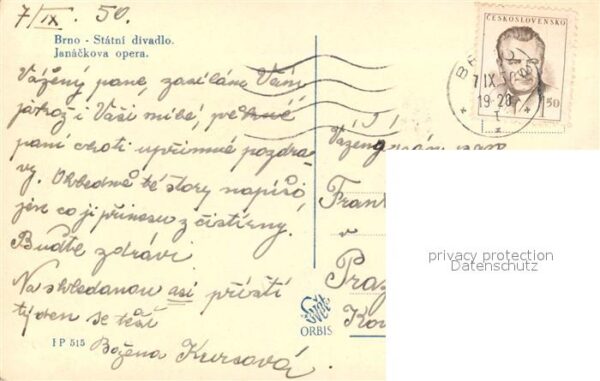 7/IX. 50.
Brno - Státní divadlo.
Janáčkova opera.
Vážený pane, zasílám Vám
jakož i Vaší milé, pěkné
paní choti upřímné pozdra-
vy. Ohledně té story napíši,
jen co ji přinesu z čistírny.
Buďte zdrávi
Na shledanou asi příští
týden se těší
Božena Kursová.
I P 515
Svět
ORBIS
ČESKOSLOVENSKO
1 50
7 IX 50
19-20
I
TJ
Vážený pan
Frant
v
Pra
Kou
privacy protection
Datenschutz